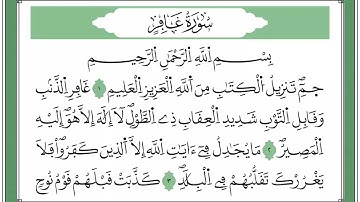 سُورَةُ غَافِرٍ
بِسْمِ اِللَّهِ اِلرَّحْمَٰنِ اِلرَّحِيمِ
حَمِٓ تَنزِيلُ اُلْكِتَٰبِ مِنَ اَللَّهِ اِلْعَزِيزِ اِلْعَلِيمِ ١ غَافِرِ اِلذَّنۢبِ
وَقَابِلِ اِلتَّوْبِ شَدِيدِ اِلْعِقَابِ ذِے اِلطَّوْلِ لَآ إِلَٰهَ إِلَّا هُوَ إِلَيْهِ
اِلْمَصِيرُ ٢ مَا يُجَٰدِلُ فِےٓ ءَايَٰتِ اِللَّهِ إِلَّا اَلذِينَ كَفَرُواْ فَلَا
يَغْرُرْكَ تَقَلُّبُهُمْ فِے اِلْبِلَٰدِ ٣ كَذَّبَتْ قَبْلَهُمْ قَوْمُ نُوحٍ